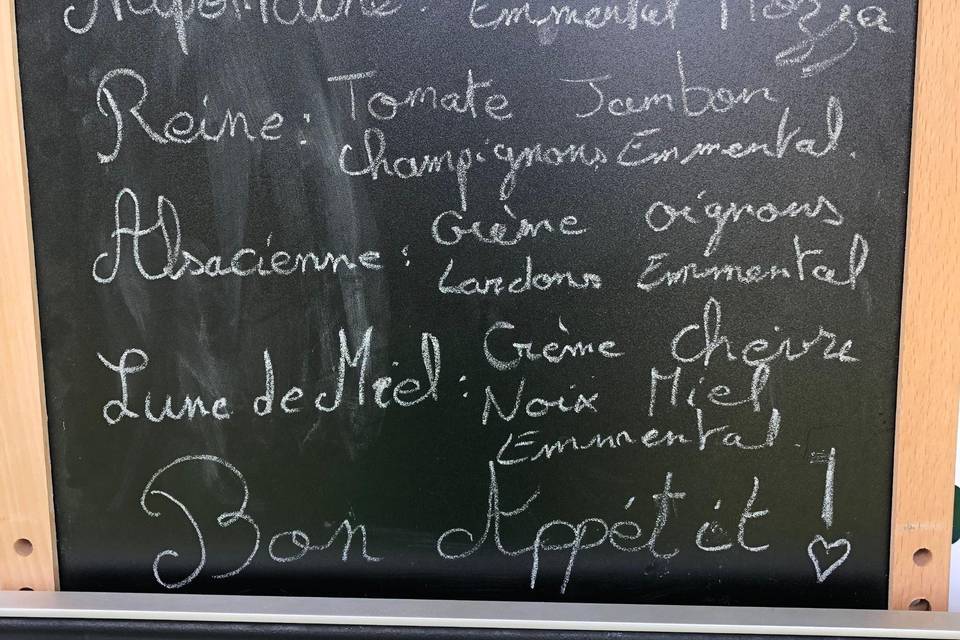 Napolitaine : Emmental Mozza
Reine : Tomate Jambon
Champignons Emmental.
Alsacienne : Crème oignons
Lardons Emmental
Lune de Miel : Crème chèvre
Noix Miel
Emmental.
Bon Appétit !